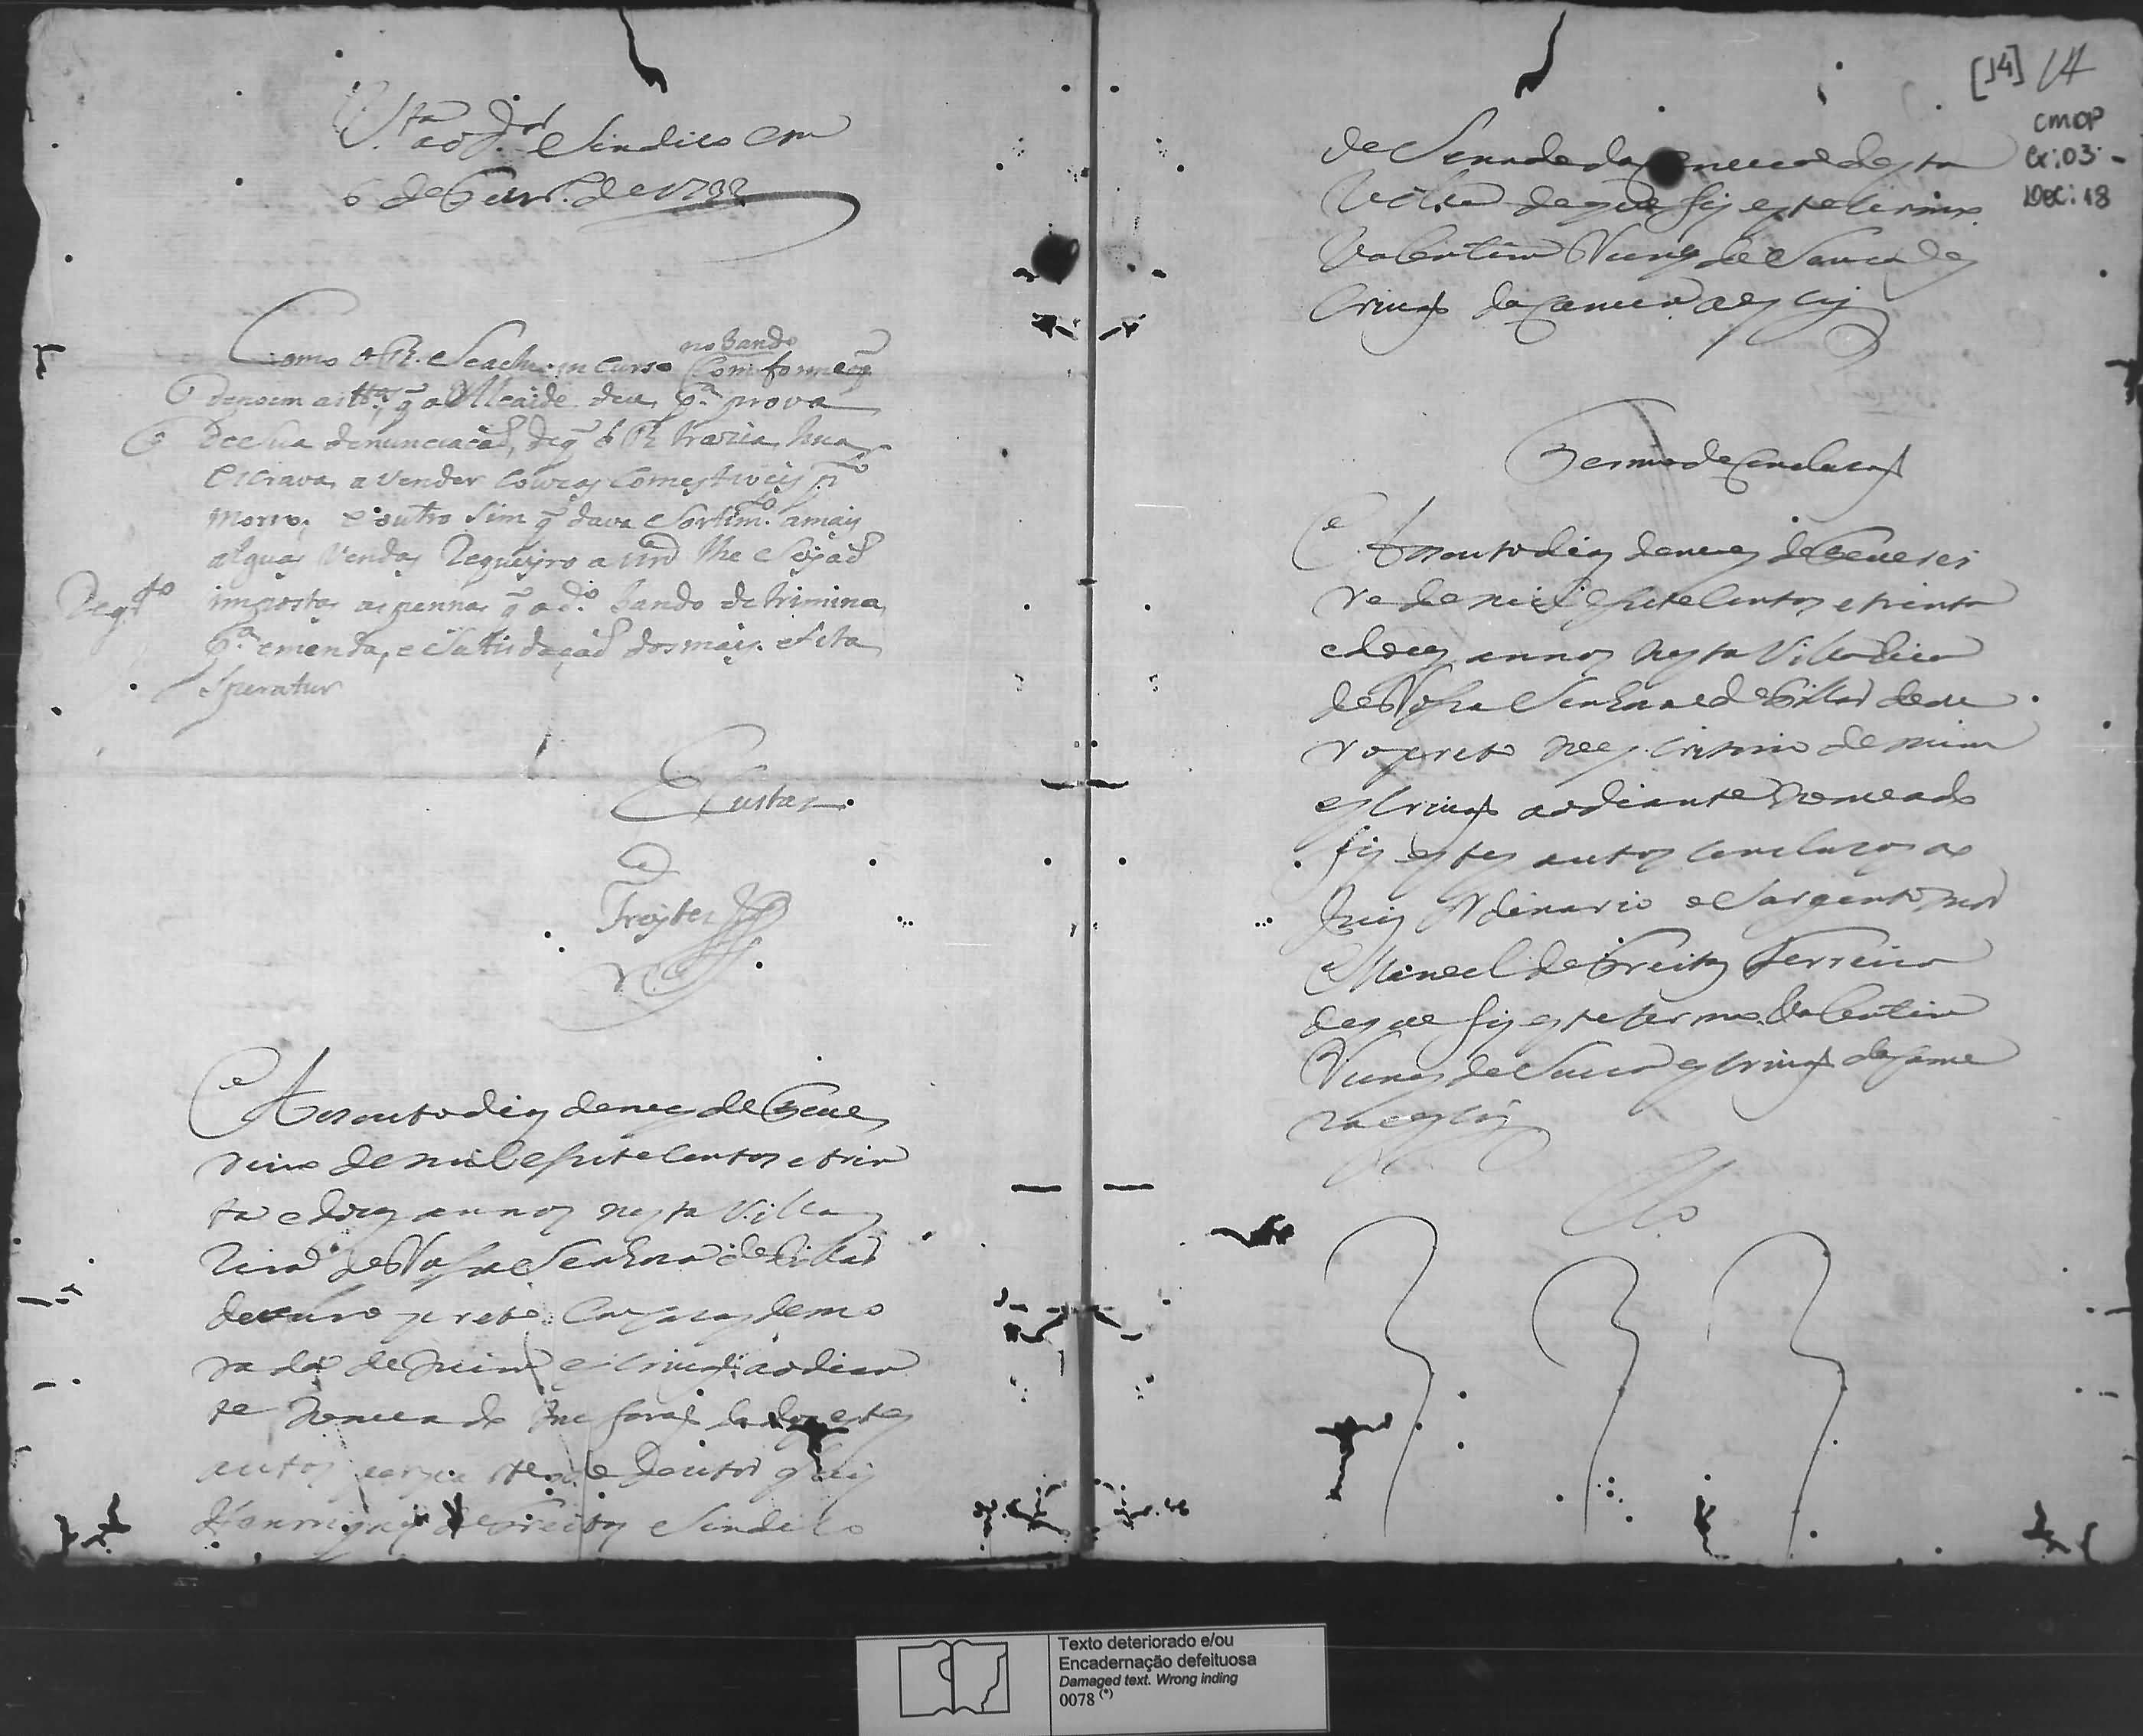 V.ta ao D.or Sindico em
6 de Janr.o de 1732
no bando
Como o R. Se acha incurso Conforme q̃
depoem as tt.as q̃ o Alcaide deu p.a prova
de sua denunciacaõ, de q̃ o R trazia hua
escrava a vender couzas comestiveis p.lo
morro, e outro sim q̃ dava sortim.to a mais
alguas vendas Requeyro a vm.ce lhe sejaõ
impostas as pennas q̃ o d.o bando detrimina
p.a emenda, e Satisdaçaõ dos mais. et ita
Speratur
E Custas.
Freytas
Aos outo dias do mes de Janei
reiro de mil e sete centos e trin
ta e dous annos nesta Villa
Rica de Nossa Senhora do Pillar
do ouro preto em cazas de mo
rada de mim escrivaõ ao dian
te nomeado me foraõ dados estes
autos por parte do Doutor
Henriques de Freitas Sindico
[14] 14
CMOP
Cx: 03 -
Doc: 18
do Senado da Camera desta
Villa de que fiz este termo
Valentim Nunes de Souza es
crivaõ da Camera o escrevy
Termo de Concluzaõ
Aos outo dias do mes de Janeiro
de mil e sete centos e trinta
e dous annos nesta Villa Rica
de Nossa Senhora do Pillar do ou
ro preto no escritorio de mim
escrivaõ ao diante nomeado
fiz estes autos concluzos ao
Juiz Ordinario o Sargento mor
Manoel de Freitas Ferreira
de que fiz este termo Valentim
Nunes de Souza escrivaõ da Came
ra o escrevy
Cls.o
Texto deteriorado e/ou
Encadernação defeituosa
Damaged text. Wrong inding
0078 (*)